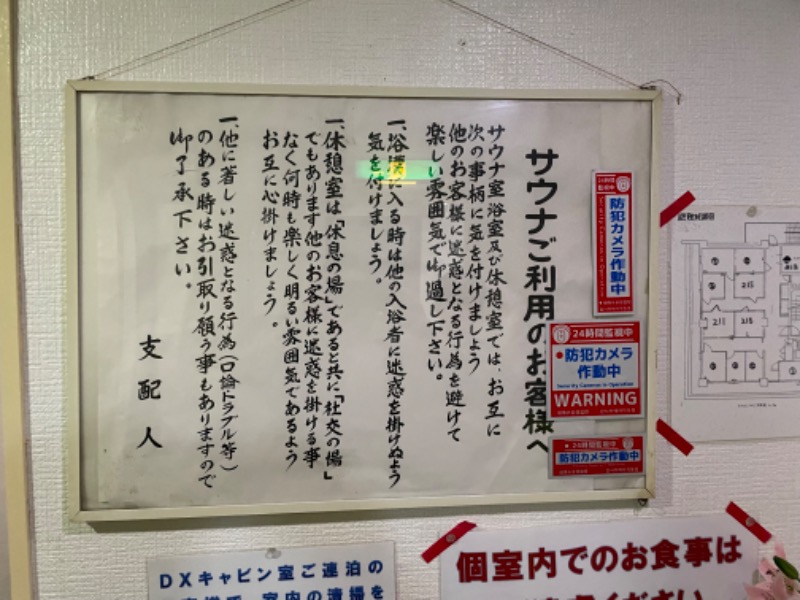 サウナご利用のお客様へ
サウナ室浴室及び休憩室では、お互に
次の事柄に気を付けましょう
他のお客様に迷惑となる行為を避けて
楽しい雰囲気で御過し下さい。
一、浴槽に入る時は他の入浴者に迷惑を掛けぬよう
気を付けましょう。
一、休憩室は「休息の場」であると共に「社交の場」
でもあります他のお客様に迷惑を掛ける事
なく何時も楽しく明るい雰囲気であるよう
お互に心掛けましょう。
一、他に著しい迷惑となる行為(口論トラブル等)
のある時はお引取り願う事もありますので
御了承下さい。
支配人
24時間監視中
防犯カメラ作動中
Security Camera in Operation
24時間監視中
防犯カメラ
作動中
Security Camera in Operation
WARNING
24時間監視中
防犯カメラ作動中
215
211
DXキャビン室ご連泊の
室内の清掃を
個室内でのお食事は
ください